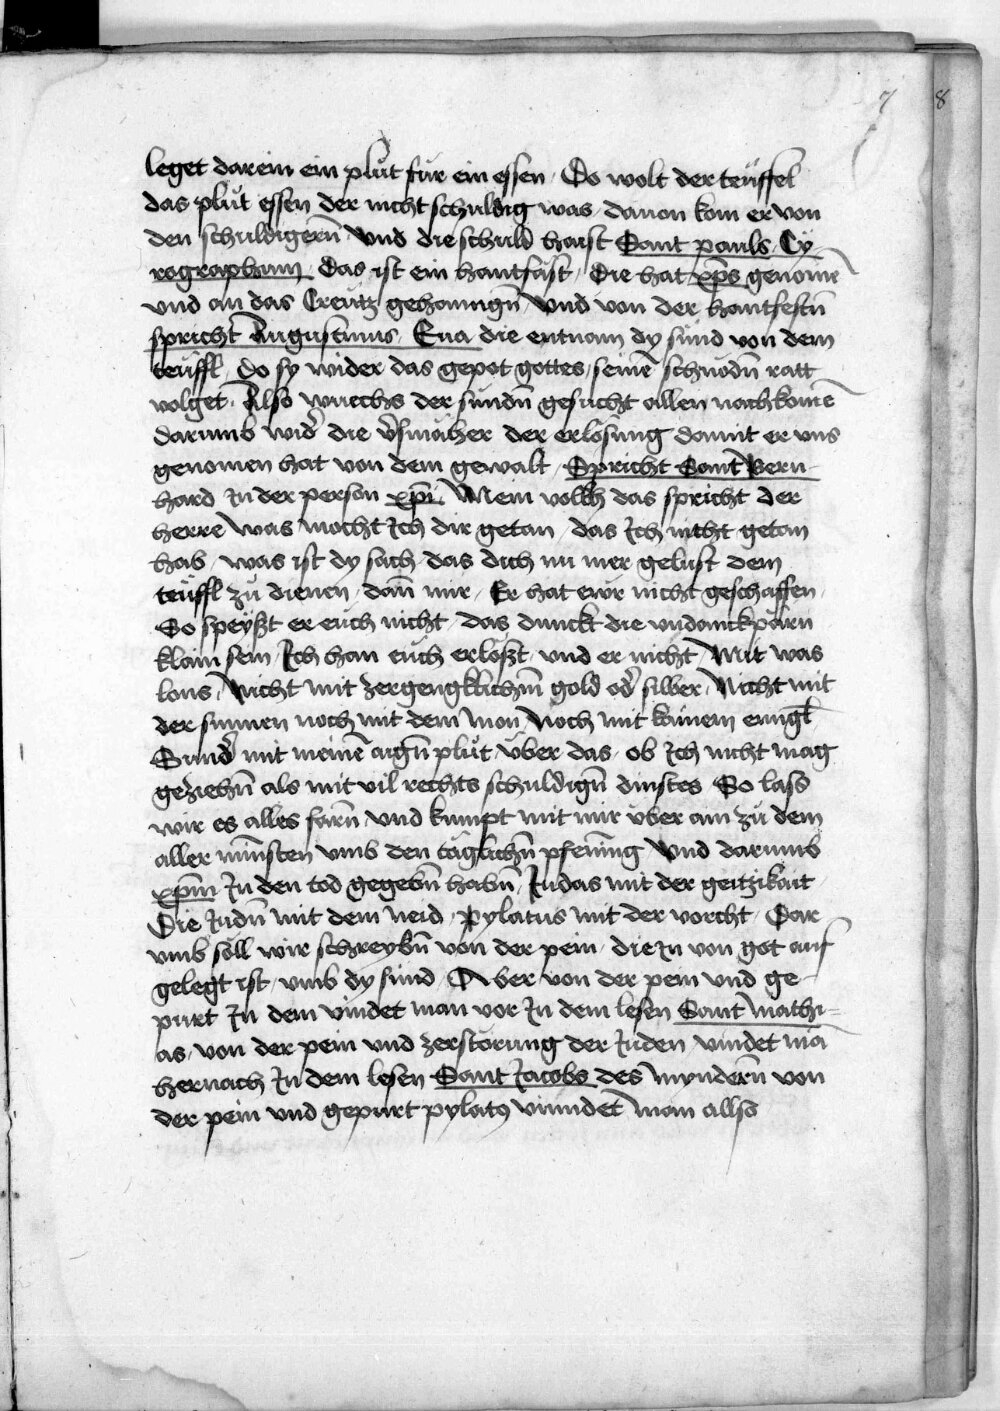 7 8
leget darein ein plůt fur ein essen Do wolt der teuffel
das plůt essen der nicht schuldig was dauon kom er von
den schuldigern̄ vnd die schuld haist Sant pauls Cy
rographum Das ist ein hantfäst Die hat xp̄s genomē
vnd an das Creutz gehanngn̄ vnd von der hantfestn̄
spricht Augustinus Eua die entnam dy sund von dem
teuffl Do sy wider das gepot gottes seinē schnodn̄ ratt
volget Also wuechs der sundn̄ gesucht allen nachkomē
darumb wid̄ die v̄smäher der erlosung damit er vns
genomen hat von dem gewalt Spricht Sant Bern
hard In der person xp̄i Mein vollkh das spricht der
herre was mocht Ich dir getan das Ich nicht getan
hab was ist dy sach das dich nu mer gelust dem
teuffl zů dienen dan̄ mir Er hat ewr nicht geschaffen
So speyßt er euch nicht das dunckt die vndanckpärn
klain sein Ich han euch erloßt vnd er nicht Mit was
lons Nicht mit zergengklichm̄ gold od̄ silber Nicht mit
der sunnen noch mit dem mon Noch mit kainem enngl̄
Sund̄ mit meinē aign̄ plůt vber das ob Ich nicht mag
geziehn̄ als mit vil rechts schuldign̄ dinstes So lass
wir es alles farn̄ vnd kumpt mit mir vber ain zů dem
aller minsten vmb den täglichn̄ pfening vnd darumb
xpm̄ In den tod gegebn̄ habn̄ Judas mit der geitzikait
Die Judn̄ mit dem neid pylatus mit der vorcht Dar
vmb soll wir schreybn̄ von der pein die In von got auf
gelegt ist vmb dy sund Aber von der pein vnd ge-
purt In dem vindet man vor In dem lesen Sant Mathi=
as von der pein vnd zerstorung der Juden vindet mā
hernach In dem lesen Sant Jacobs des myndern̄ von
der pein vnd gepurt pylatꝯ vinndet man allso